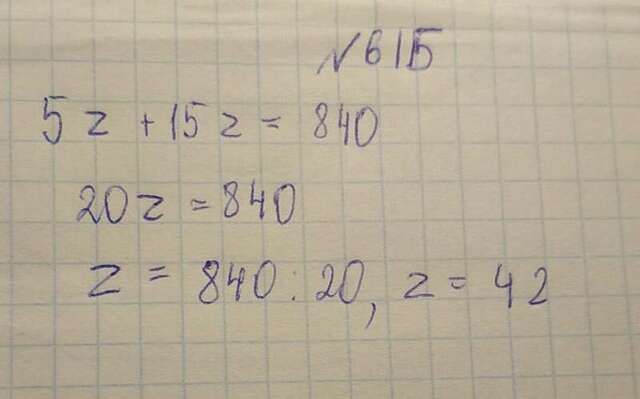 №615
5z + 15z = 840
20z = 840
z = 840 : 20, z = 42